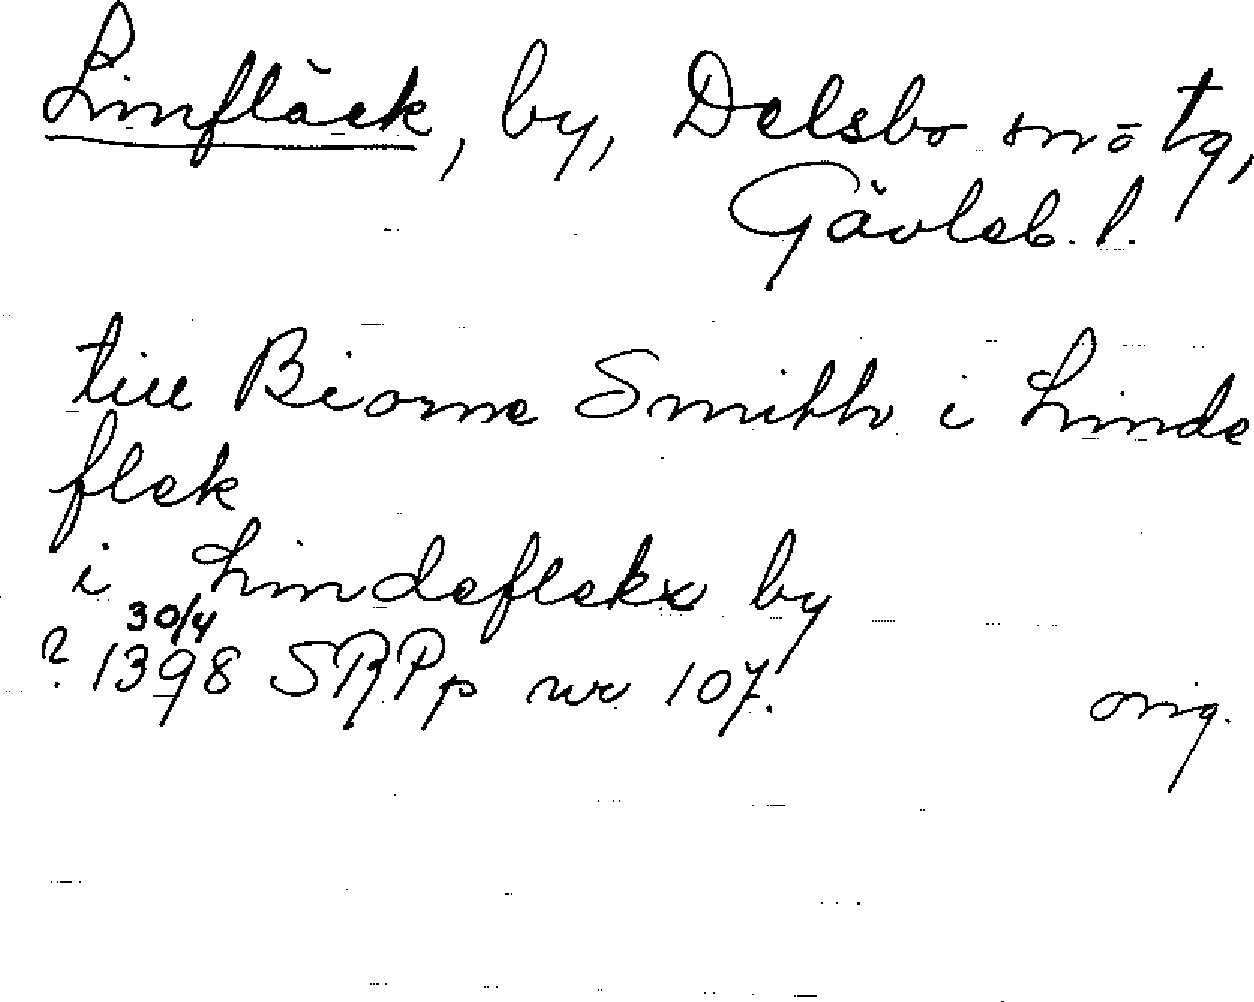 Linfläck, by, Delsbo sn o tg,
Gävleb. l.
till Biorne Smithh i Linde
flek
i Lindeflekx by
30/4
? 1398 SRPp nr 107.
orig.